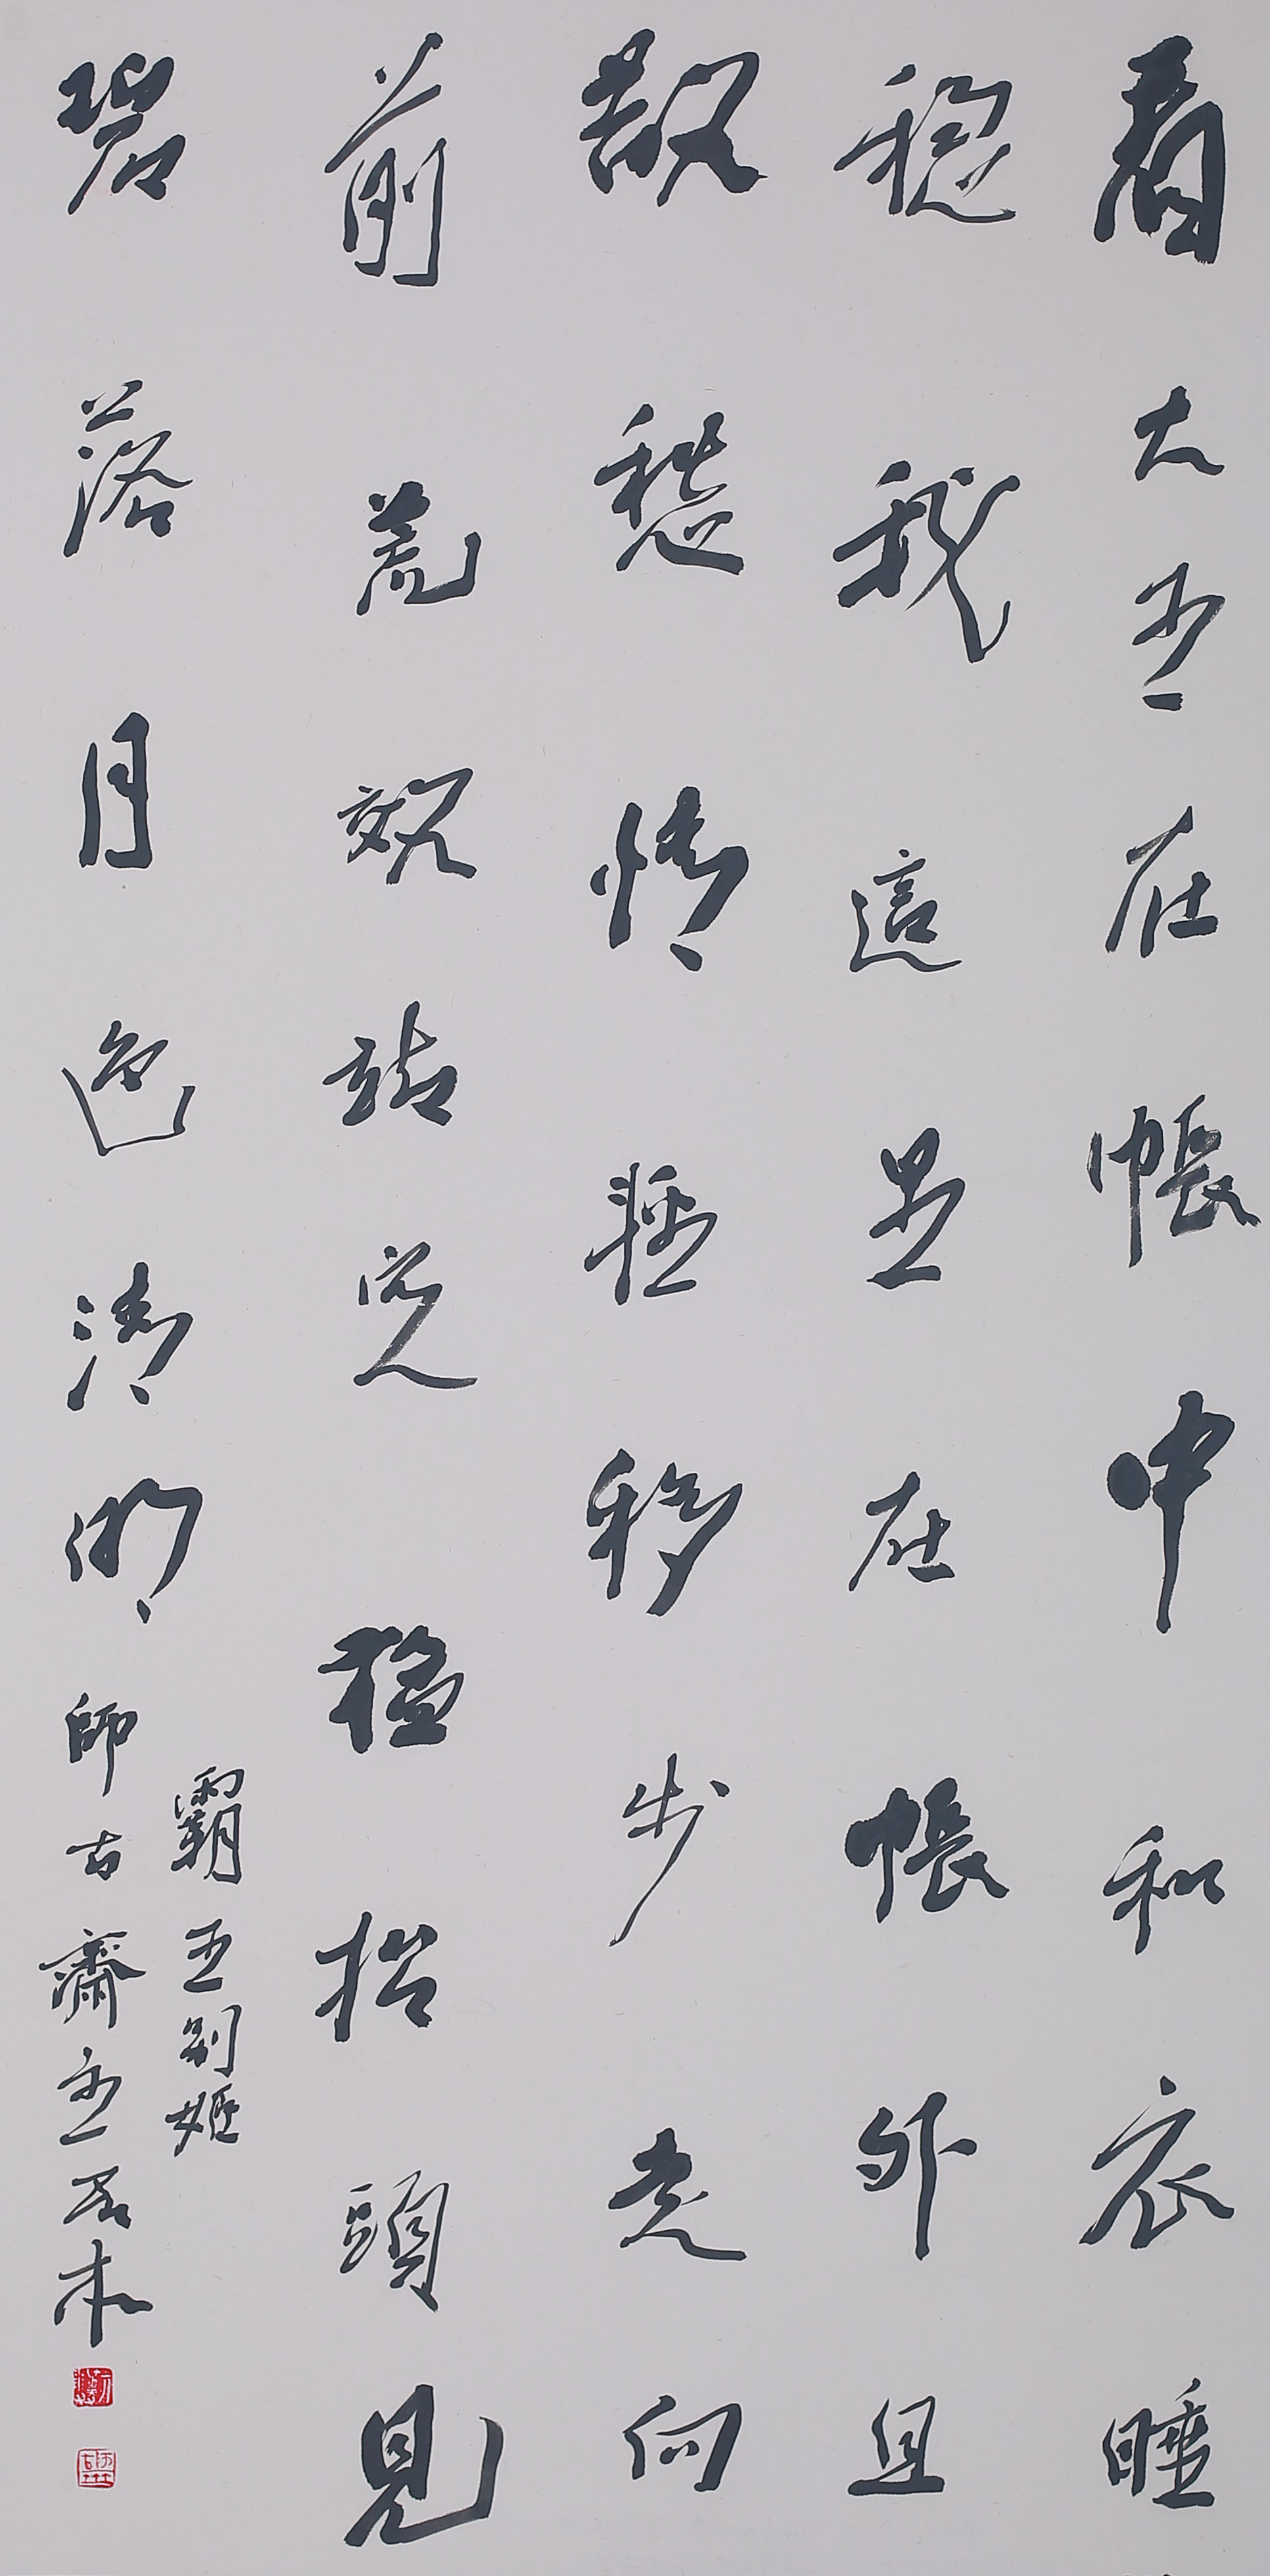 看大王在帳中和衣睡
穩我這里在帳外且
散愁情輕移步走向
前荒郊站定猛抬頭見
碧落月色清明
霸王別姬
師古齋主